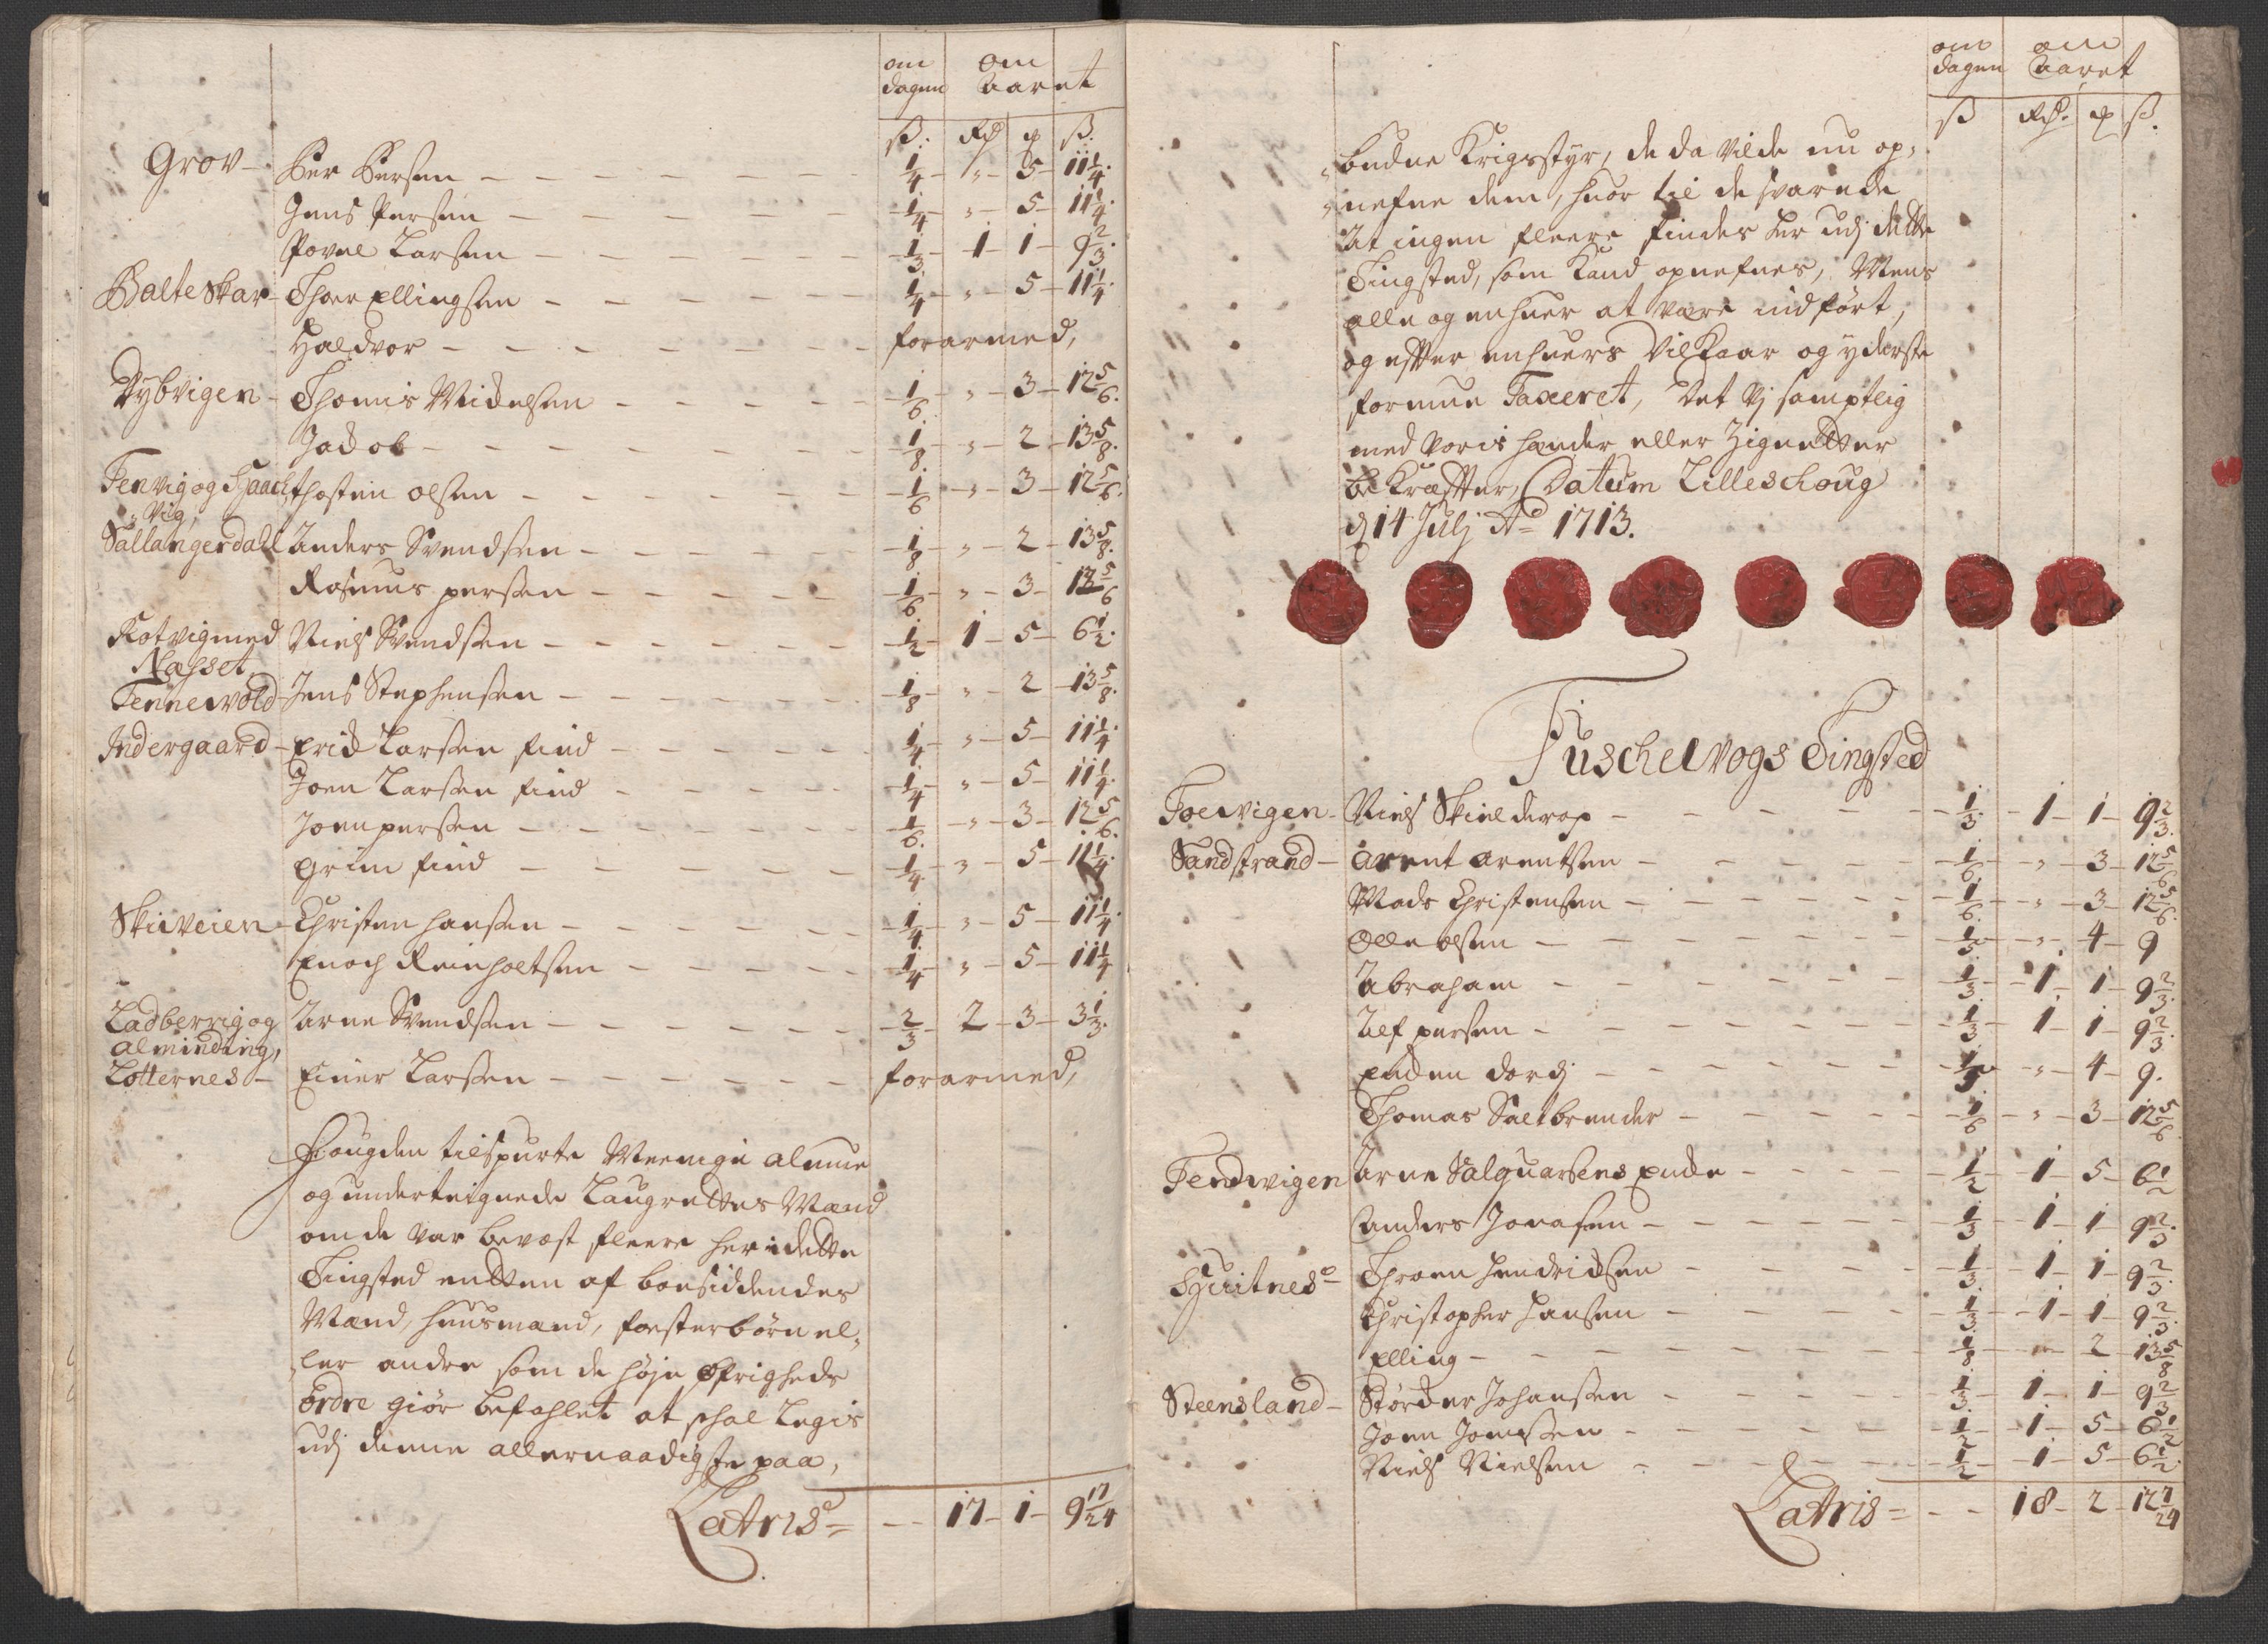 om dagen om aaret
ß. Rd ȝ ß.
Grov - Per Persen - 1/4 - " - 5 - 11 1/4.
Jens Persen - 1/4 - " - 5 - 11 1/4.
Povel Larsen - 1/3 - 1 - 1 - 9 2/3.
Balteskar - Thore Ellingsen - 1/4 - " - 5 - 11 1/4.
Haldvor - forarmed,
Dybvigen - Thomis Michelsen - 1/6 - " - 3 - 12 5/6.
Jacob - 1/8 - " - 2 - 13 5/8.
Fenvig og Haach Thosten olsen - 1/6 - " - 3 - 12 5/6.
Vig,
Sallangerdall Anders Svendsen - 1/8 - " - 2 - 13 5/8.
Rasmus persen - 1/6 - " - 3 - 12 5/6
Rotvig med Niels Svendsen - 1/2 - 1 - 5 - 6 1/2.
Nasset,
Tennewold - Jens Stephensen - 1/8 - " - 2 - 13 5/8.
Indergaard - Erich Larsen find - 1/4 - " - 5 - 11 1/4.
Joen Larsen find - 1/4 - " - 5 - 11 1/4.
Joen persen - 1/6. - " - 3 - 12 5/6.
Grim find - 1/4 - " - 5 - 11 1/4.
Skiveien - Christen hansen - 1/4 - " - 5 - 11 1/4.
Enoch Reinholtsen - 1/4 - " - 5 - 11 1/4
Ladberrig og Arne Svendsen - 2/3 - 2 - 3 - 3 1/3.
alminding,
Lotternes - Einer Larsen - forarmed,
Fougden tilspurte Meenige almue
og underteignede Laugrettes Mænd
om de var bevæst fleere her i dette
Tingsted entten af boesiddendes
Mænd, huusmænd, fosterbørn el,
ler andre som de høje Øfrigheds
ordre giør befahlet at schal Legis
udj denne allernaadigste paa,
Latris = - - 17 - 1 - 9 17/24
om dagen om aaret
ß Rd. ȝ ß.
budne Krigsstyr, de da vilde nu op,
nefne dem, huor til de svarede
At ingen fleere findes her udj dette
Tingsted, som Kand opnefnes, Mens
alle og enhuer at være indført,
og effter enhuers Vilkaar og yderste
formue Taxeret, Det Vj samptlig
med voris hænder eller Zignetter
bekræffter, Datum Lilleschoug
d 14 Julj Ao 1713.
Fuschelvogs Tingsted
Foevigen - Niels Skielderop - 1/3 - 1 - 1 - 9 2/3.
Sandstrand - Arent Arentsen - 1/6. - " - 3 - 12 5/6
Mads Christensen - 1/6. - " - 3 - 12 5/6.
Olle olsen - 1/5. - " - 4 - 9
Abraham - 1/3 - 1 - 1 - 9 2/3.
Ulf persen - 1/3 - 1 - 1 - 9 2/3.
Enchen dordj - 1/5 - " - 4 - 9.
Thomas Saltbrender - 1/6 - " - 3 - 12 5/6.
Tendwigen Arne Salguarsens Enche - 1/2 - 1 - 5 - 6 1/2
Anders Jonasen - 1/3 - 1 - 1 - 9 2/3.
Huitnes - Throen Hendrichsen - 1/3. - 1 - 1 - 9 2/3.
Christopher Hansen - 1/3. - 1 - 1 - 9 2/3.
Elling - 1/8. - " - 2 - 13 5/8
Steensland - Størcher Johansen - 1/3. - 1 - 1 - 9 2/3
Joen Jonissen - 1/2 - 1 - 5 - 6 1/2
Niels Nielsen - 1/2 - 1 - 5 - 6 1/2.
Latris = - - 18 - 2 - 12 7/24